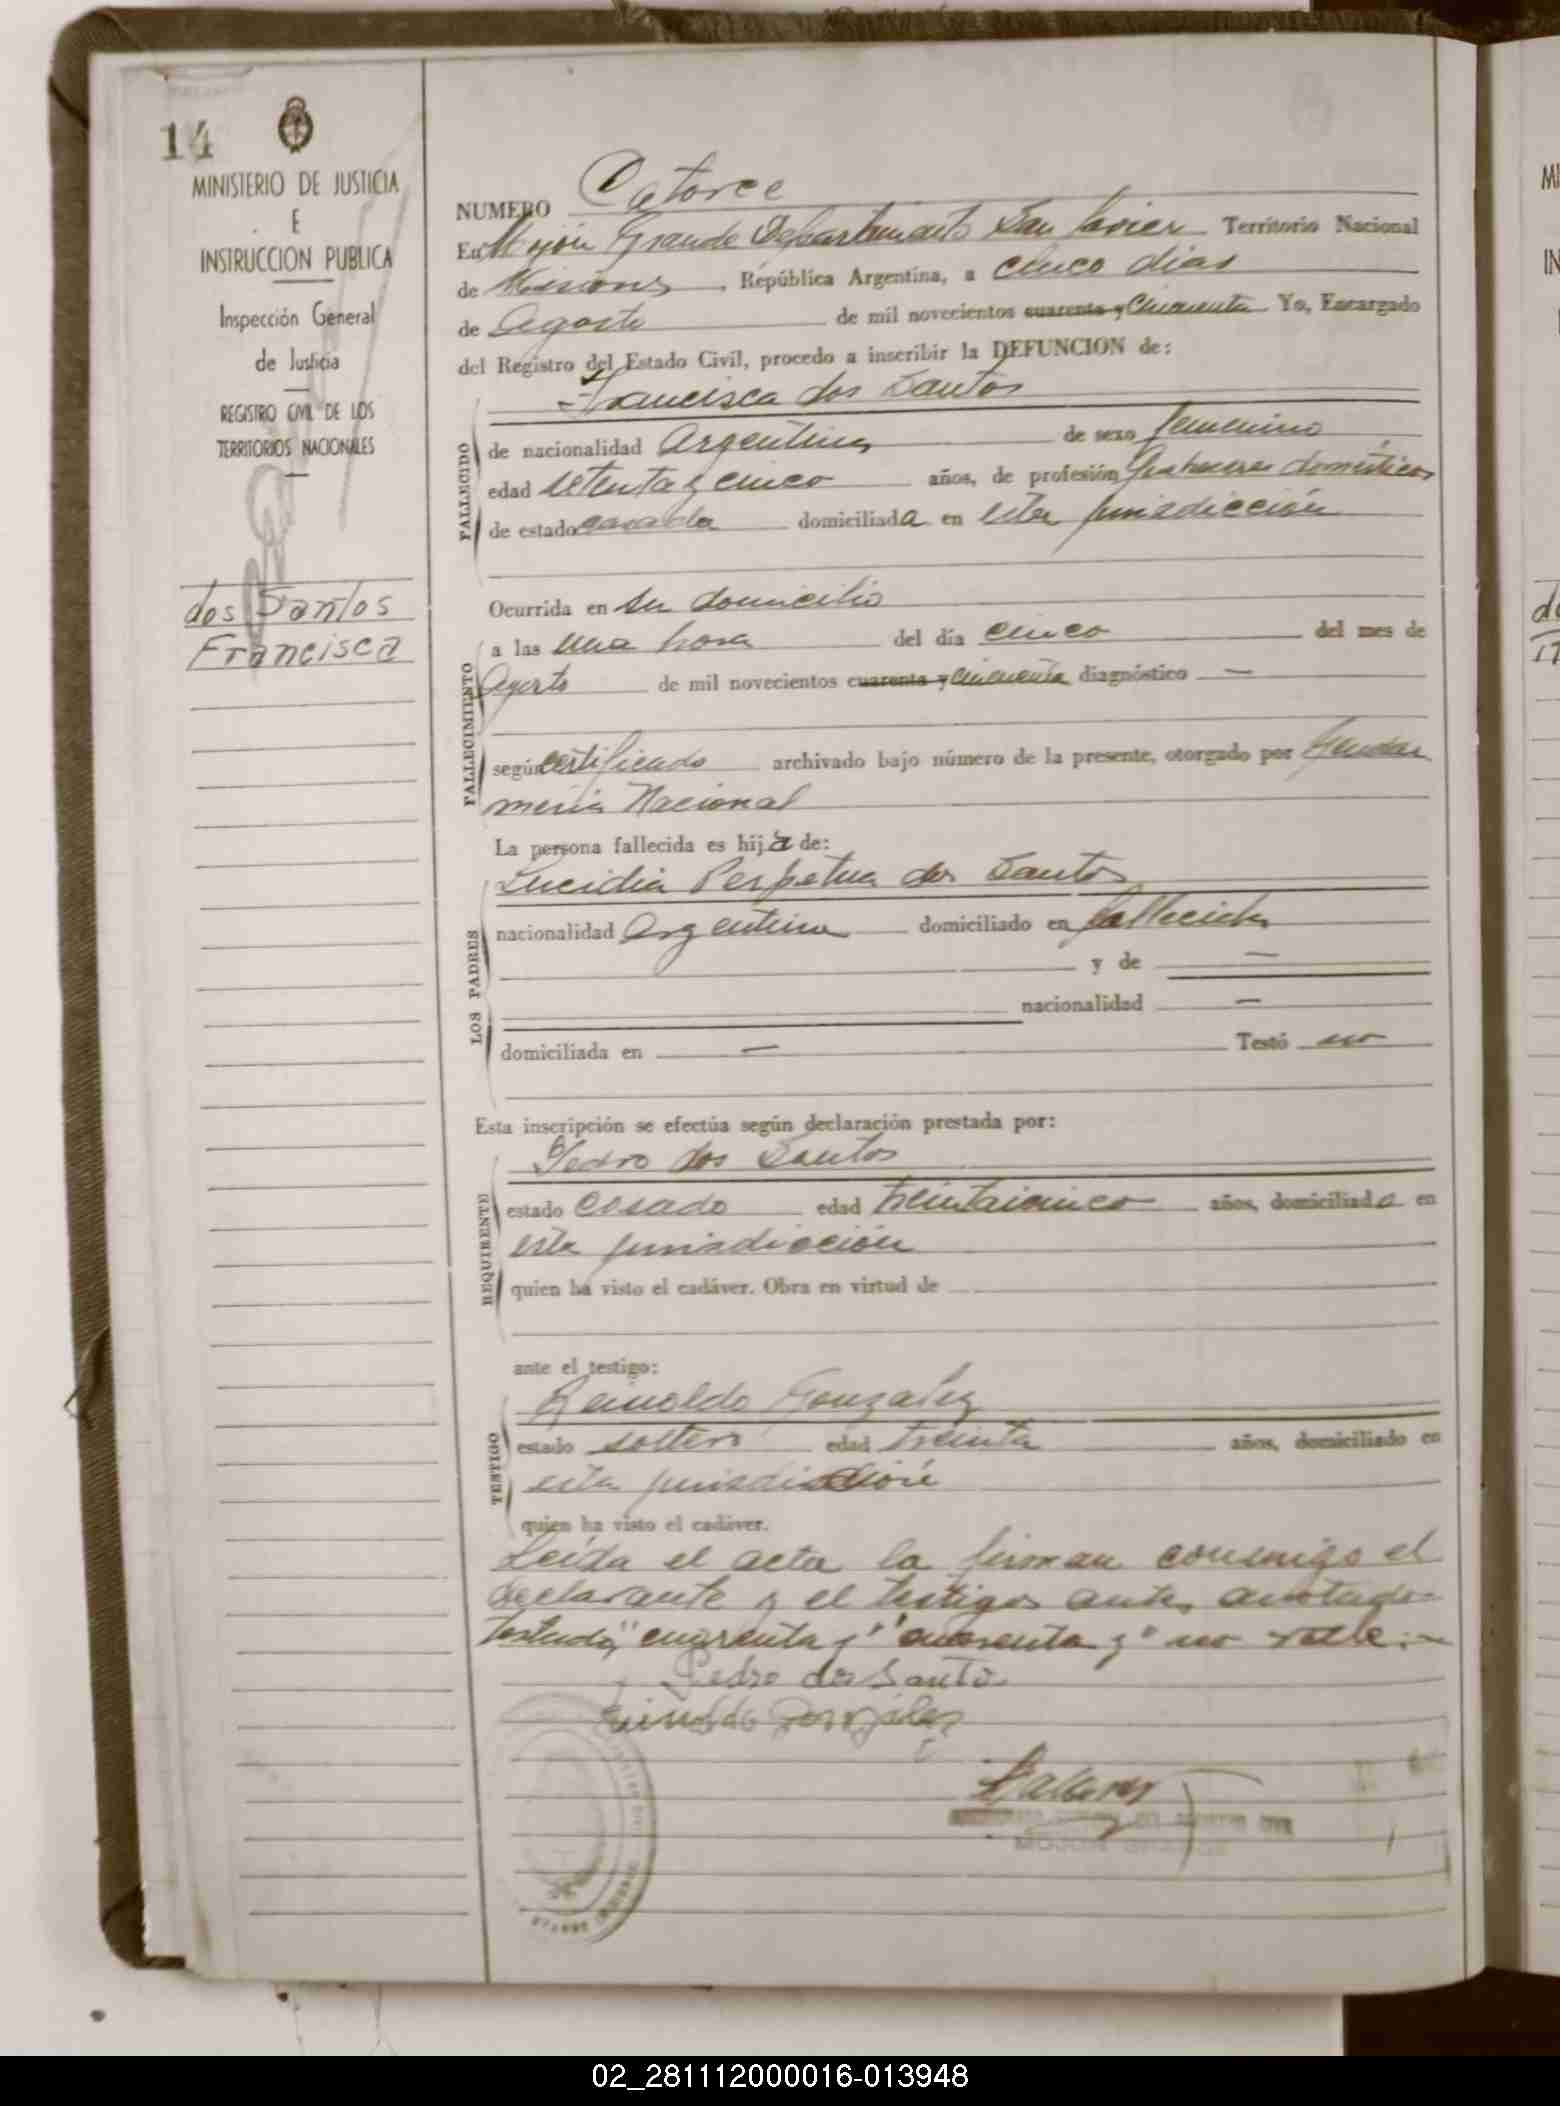 14
MINISTERIO DE JUSTICIA
E
INSTRUCCION PUBLICA
Inspección General
de Justicia
REGISTRO CIVIL DE LOS
TERRITORIOS NACIONALES
dos Santos
Francisca
NUMERO Catorce
En Mojón Grande Departamento San Javier Territorio Nacional
de Misiones, República Argentina, a cinco dias
de Agosto de mil novecientos cuarenta y Cincuenta Yo, Encargado
del Registro del Estado Civil, procedo a inscribir la DEFUNCION de:
Francisca dos Santos
FALLECIDO
de nacionalidad Argentina de sexo femenino
edad setenta y cinco años, de profesión Quehaceres domésticos
de estado casada domiciliada en esta jurisdicción
Ocurrida en su domicilio
FALLECIMIENTO
a las una hora del día cinco del mes de
Agosto de mil novecientos cuarenta y cincuenta diagnóstico —
según certificado archivado bajo número de la presente, otorgado por Gendar
meria Nacional
La persona fallecida es hija de:
LOS PADRES
Lucidia Perpetua dos Santos
nacionalidad Argentina domiciliado en fallecida
y de —
nacionalidad —
domiciliada en — Testó no
Esta inscripción se efectúa según declaración prestada por:
REQUIRENTE
Pedro dos Santos
estado casado edad treintaicinco años, domiciliado en
esta jurisdicción
quien ha visto el cadáver. Obra en virtud de
ante el testigo:
TESTIGO
Reinoldo Gonzalez
estado soltero edad treinta años, domiciliado en
esta jurisdicción
quien ha visto el cadáver.
Leída el acta la firman conmigo el
declarante y el testigos antes anotado
Testado "cuarenta y" "cuarenta y" no vale.—
Pedro dos Santo
02_281112000016-013948